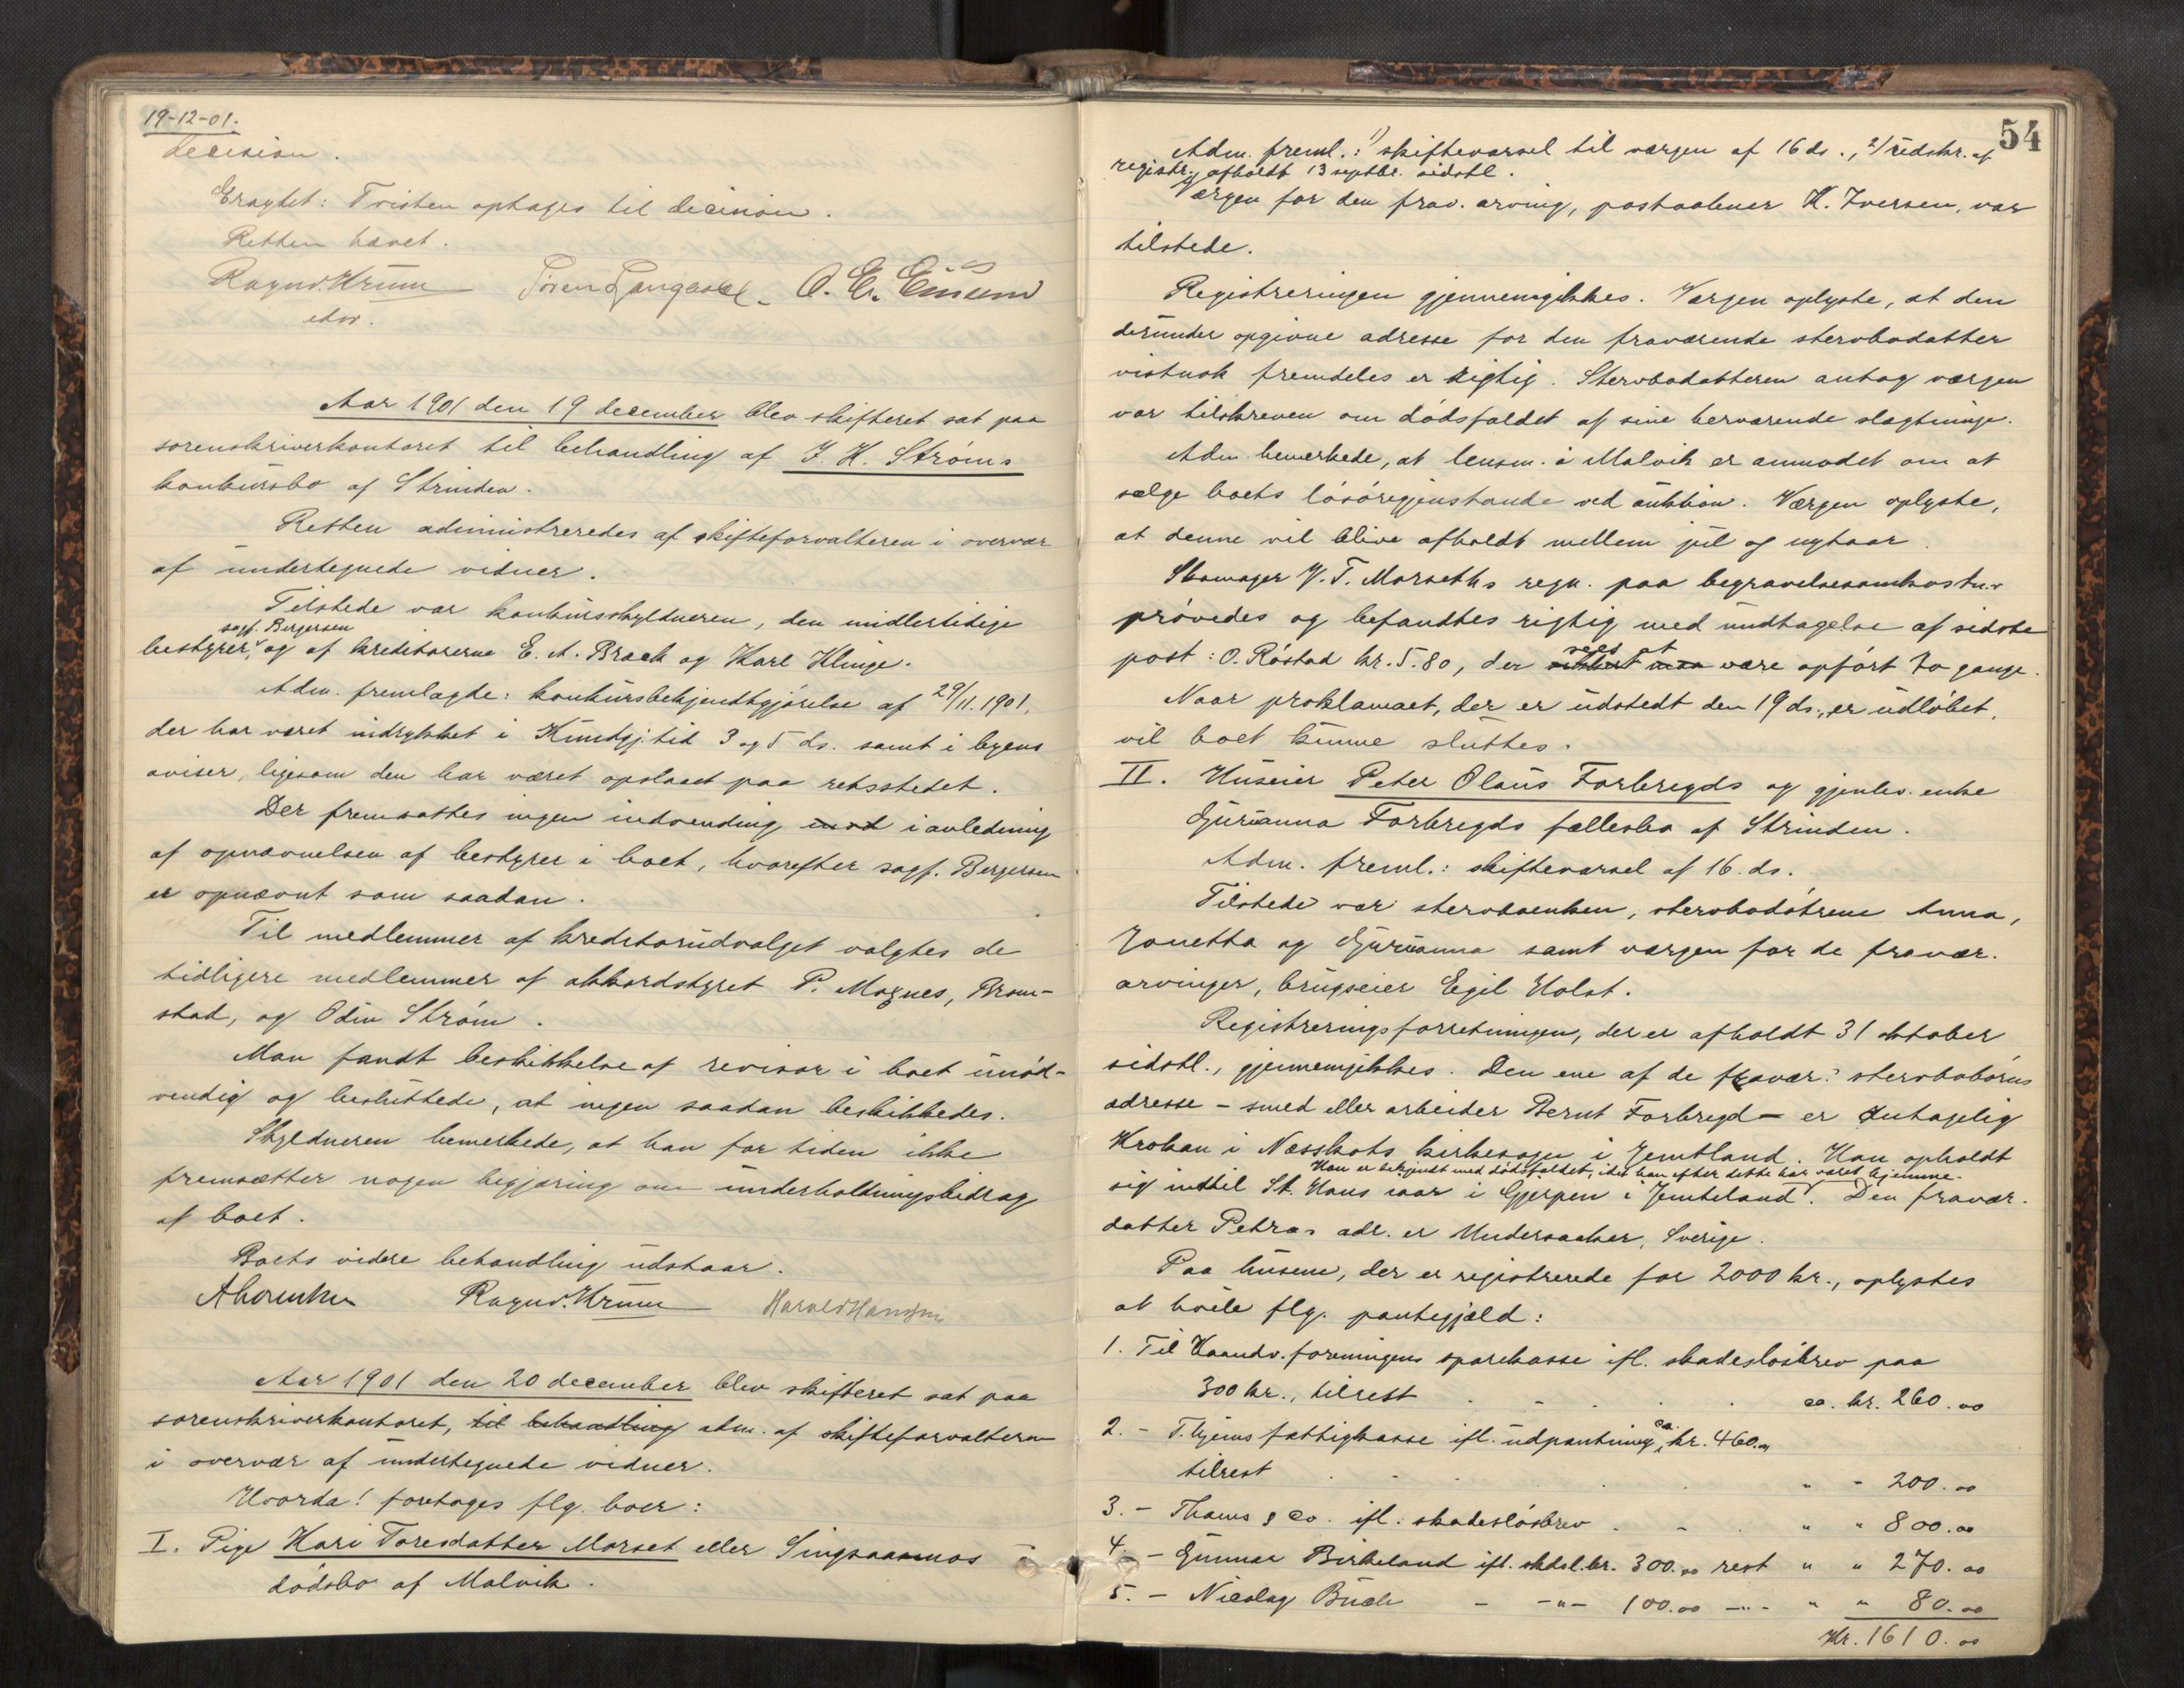 19-12-01.
decision.
Eragtet: Tvisten optages til decision.
Retten hævet.
Ragnv. Krum
edsv.
Aar 1901 den 19 december blev skifteret sat paa
sorenskriverkontoret til behandling af J. H. Strøms
konkursbo af Strinden.
Retten administreredes af skifteforvalteren i overvær
af undertegnede vidner.
Tilstede var konkursskyldneren, den midlertidige
sagf. Bergersen
bestyrer, og af kreditorerne E. A. Brack og Karl Klinge.
Adm. fremlagde: konkursbekjendtgjørelse af 29/11. 1901,
der har været indrykket i Kundgj. tid 3 og 5 ds. samt i byens
aviser, ligesom den har været opslaaet paa retsstedet.
Der fremsattes ingen indvending imod i anledning
af opnævnelsen af bestyrer i boet, hvorefter sagf. Bergersen
er opnævnt som saadan.
Til medlemmer af kreditorudvalget valgtes de
tidligere medlemmer af akkordstyret P. Magnes, Brom-
stad, og Odin Strøm.
Man fandt beskikkelse af revisor i boet unød-
vendig og besluttede, at ingen saadan beskikkedes.
Skyldneren bemerkede, at han for tiden ikke
fremsætter nogen begjæring om underholdningsbidrag
af boet.
Boets videre behandling udstaar.
Ragnv. Krum Harald Hansen
Aar 1901 den 20 december blev skifteret sat paa
sorenskriverkontoret, til behandling adm. af skifteforvalteren
i overvær af undertegnede vidner.
Hvorda! foretages flg. boer:
I. Pige Kari Toresdatter Morset eller Singsaasmos
dødsbo af Malvik.
54
Adm. freml.: 1) skiftevarsel til værgen af 16 ds., 2) udskr. af
registr. afholdt 13 septbr. sidstl.
Værgen for den frav. arving, postaabner K. Iversen, var
tilstede.
Registreringen gjennemgikkes. Værgen oplyste, at den
derunder opgivne adresse for den fraværende stervbodatter
vistnok fremdeles er rigtig. Stervbodatteren antog værgen
var tilskreven om dødsfaldet af sine herværende slægtninge.
Adm. bemerkede, at lensm. i Malvik er anmodet om at
sælge boets løsøregjenstande ved auktion. Værgen oplyste,
at denne vil blive afholdt mellem jul og nytaar.
Skomager V. T. Morseths regn. paa begravelsesomkostn.
prøvedes og befandtes rigtig med undtagelse af sidste
sees at
post: O. Røstad kr. 5.80, der være opført to gange.
Naar proklamaet, der er udstedt den 19 ds., er udløbet,
vil boet kunne sluttes.
II. Huseier Peter Olaus Forbregds og gjenlev. enke
Gurianna Forbregds fællesbo af Strinden.
Adm. freml.: skiftevarsel af 16. ds.
Tilstede var stervboenken, stervbodøtrene Anna,
Jonetta og Gurianna samt værgen for de fravær.
arvinger, brugseier Egil Holst.
Registreringsforretningen, der er afholdt 31 oktober
sidstl., gjennemgikkes. Den ene af de fravær. stervbobørns
adresse - smed eller arbeider Bernt Forbregd - er antagelig
Krokan i Næsskots kirkesogn i Jemtland. Han opholdt
Han er bekjendt med dødsfaldet, idet han efter dette har været hjemme.
sig indtil St. Hans iaar i Gjerpen i Jemteland. Den fravær.
datter Petras adr. er Undersaaker, Sverige.
Paa husene, der er registrerede for 2000 kr., oplystes
at hvile flg. pantegjæld:
1. Til Haandv.foreningens sparekasse ifl. skadesløsbrev paa
300 kr., tilrest ca. kr. 260.00
2. - T.hjems fattigkasse ifl. udpantning, ca. kr. 460.00
tilrest " - 200.00
3. - Thams & Co. ifl. skadesløsbrev " " 800.00
4. - Gunnar Birkeland ifl. skdsl.br. 300.00 rest " " 270.00
5. - Nicolay Buch - -"- 100.00 -"- " " 80.00
Kr. 1610.00